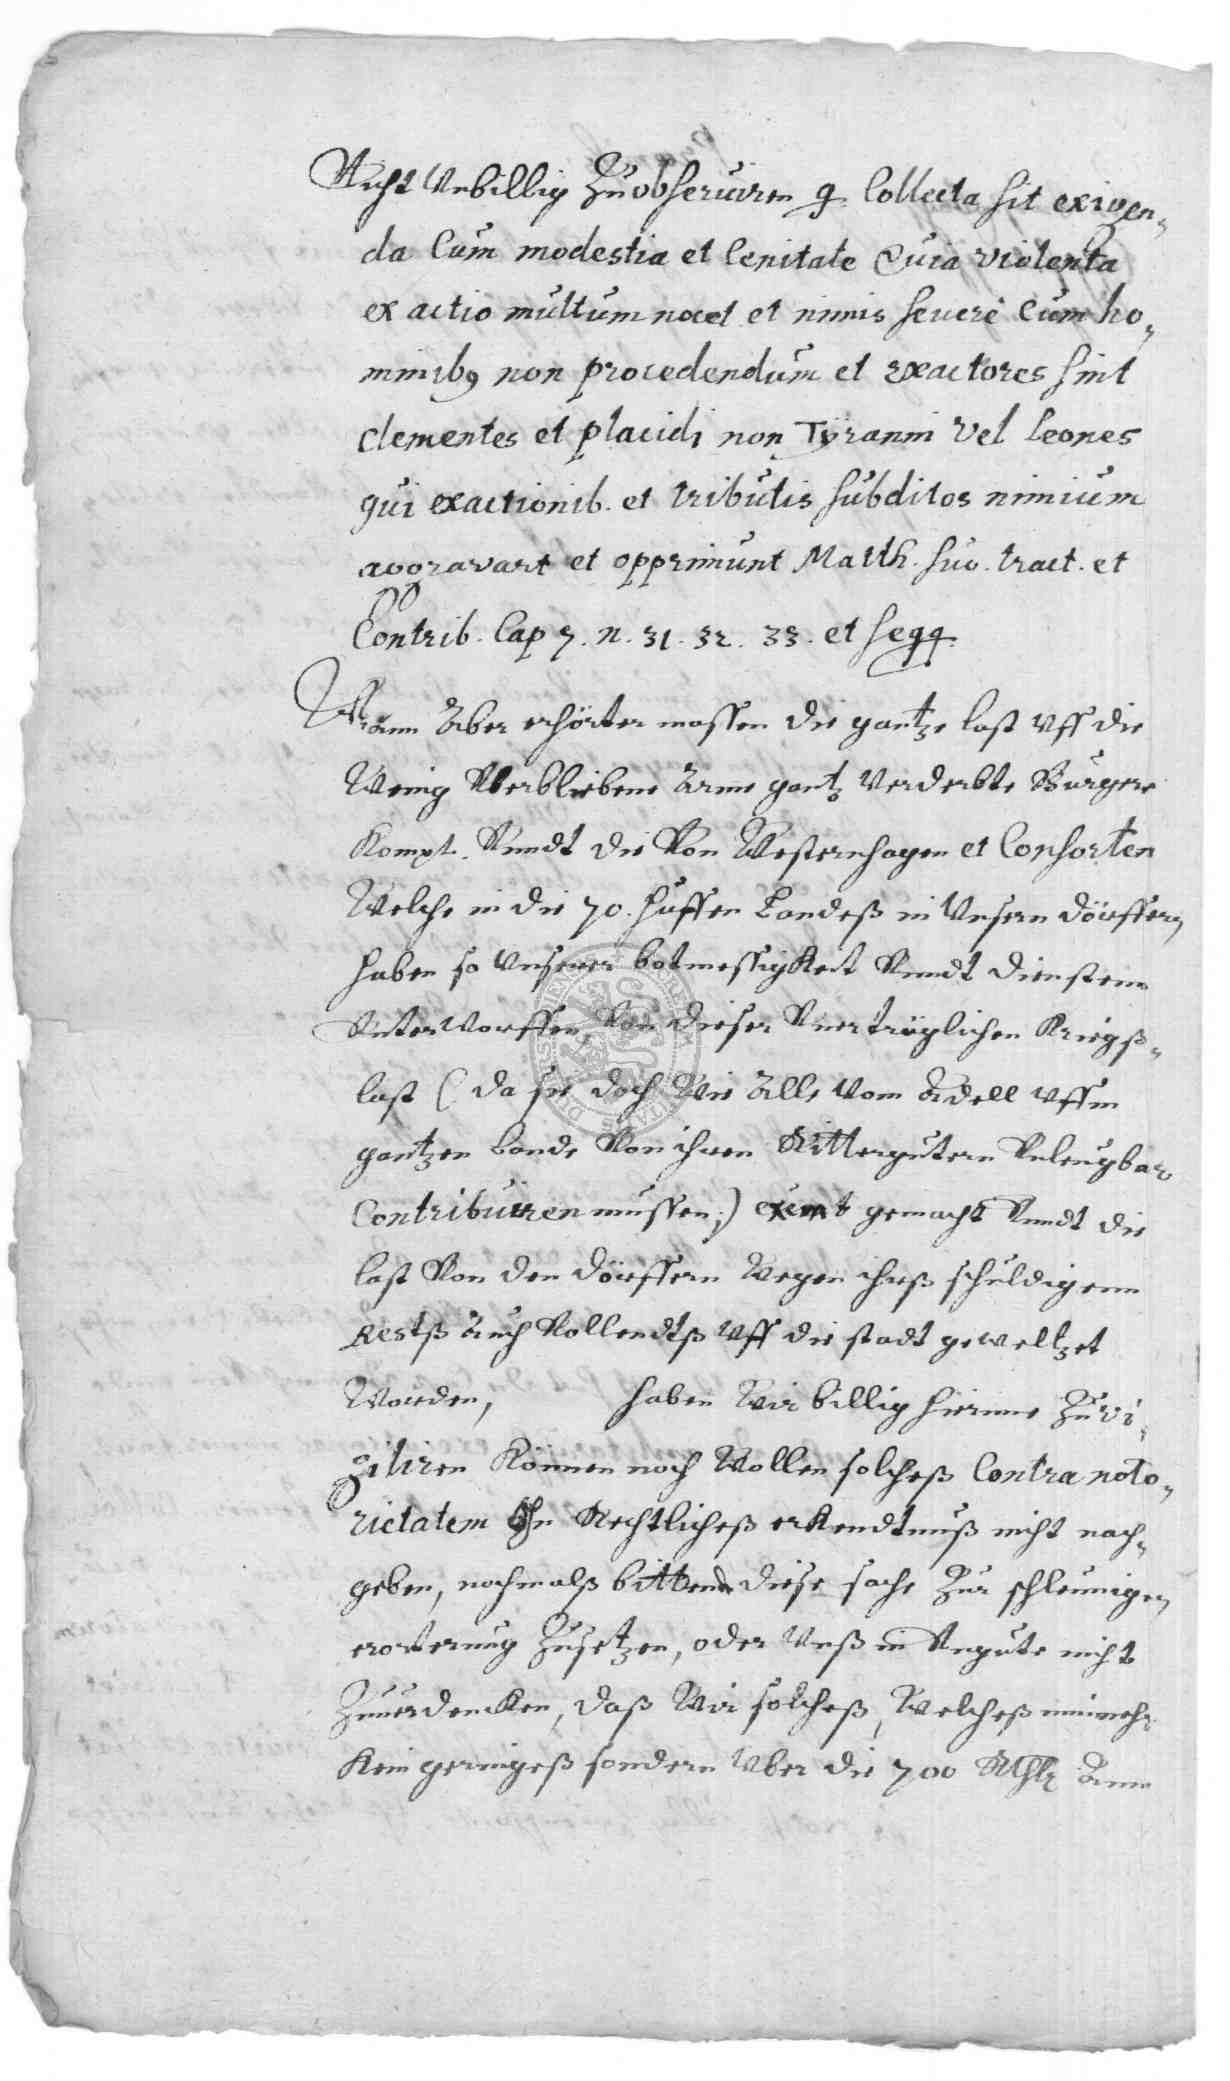 Nicht Unbillig Zuobserviren q. Collecta sit exigen-
da Cum modestia et lenitate Quia violenta
exactio multum nocet et nimis severe Cum ho-
minib9 non procedendum et exactores sint
clementes et placidi non Tÿranni vel leones
qui exactionib. et tributis subditos nimium
aggravant et opprimunt Matth. suo. tract. et
Contrib. Cap 7. n. 31. 32. 33. et seqq.
Wann Aber erhörter massen die gantze last Uff die
Wenig Uberbliebene Arme gantz Verderbte Bürgere
Kompt. Unndt die Von Westernhagen et Consorten
Welche in die 70. Huffen Landeß in Unsern dörffern
haben so Unserer botmessigKeit Unndt diensten
UnterWorffen, Von dieser Unerträglichen Kriegß-
last (da sie doch Wie Alle Vom Adell Uffm
gantzen Lande Von ihren Rittergütern Unleugbar
Contribuiren mussen;) exemt gemacht Unndt die
last Von den dörffern Wegen ihreß schuldigenn
Restß Auch Vollendtß Uff die stadt geweltzet
Worden, haben Wir billig hierinne Zuvi-
giliren Können noch Wollen solcheß Contra noto-
rietatem Ohn Rechtlicheß erKendtnuß nicht nach-
geben, nochmalß bittende diese sache Zur schleunigen
erorterung Zusetzen, oder Unß in Ungute nicht
ZuuerdencKen, daß Wir solcheß, Welcheß nunmehr
Kein geringeß sondern Uber die 700 Rthlr Ann